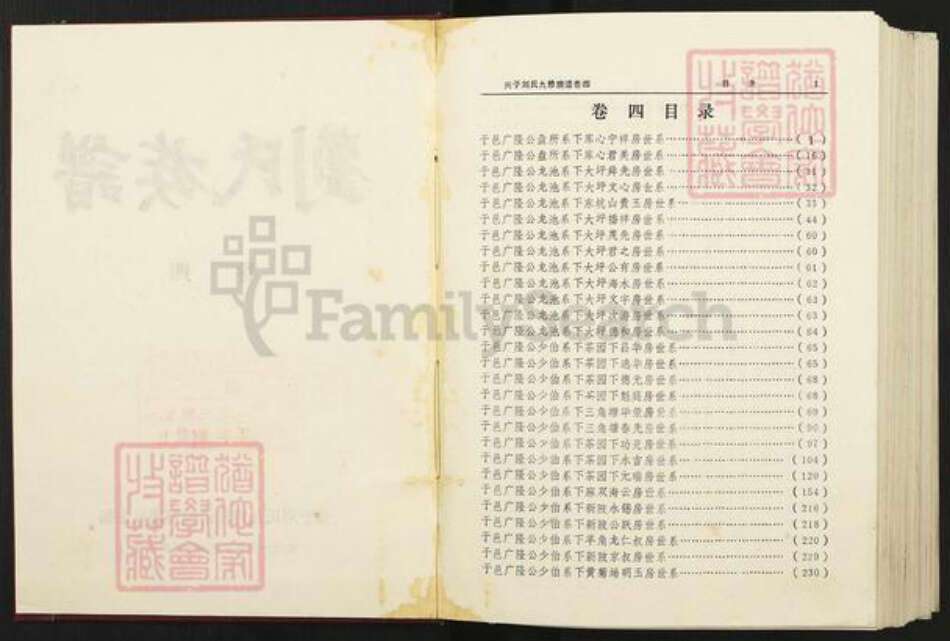 劉氏族譜
四
兴于刘氏九修族谱卷四 目录 1
卷四目录
于邑广隆公盘所系下库心宇祥房世系 (1)
于邑广隆公盘所系下库心君美房世系 (16)
于邑广隆公龙池系下大坪舜先房世系 (31)
于邑广隆公龙池系下大坪文心房世系 (32)
于邑广隆公龙池系下东坑山贵玉房世系 (33)
于邑广隆公龙池系下大坪播祥房世系 (44)
于邑广隆公龙池系下大坪茂先房世系 (60)
于邑广隆公龙池系下大坪君之房世系 (60)
于邑广隆公龙池系下大坪公有房世系 (61)
于邑广隆公龙池系下大坪海水房世系 (62)
于邑广隆公龙池系下大坪文宇房世系 (63)
于邑广隆公龙池系下大坪次海房世系 (63)
于邑广隆公龙池系下大坪德和房世系 (64)
于邑广隆公少伯系下茶园下昌华房世系 (65)
于邑广隆公少伯系下茶园下选华房世系 (65)
于邑广隆公少伯系下茶园下德光房世系 (68)
于邑广隆公少伯系下茶园下魁庭房世系 (68)
于邑广隆公少伯系下三角塘华荣房世系 (69)
于邑广隆公少伯系下三角塘春先房世系 (90)
于邑广隆公少伯系下茶园下功见房世系 (97)
于邑广隆公少伯系下茶园下永吉房世系 (104)
于邑广隆公少伯系下茶园下元瑞房世系 (120)
于邑广隆公少伯系下麻双海云房世系 (154)
于邑广隆公少伯系下新陂永锡房世系 (216)
于邑广隆公少伯系下新陂公跃房世系 (218)
于邑广隆公少伯系下羊角龙仁叔房世系 (220)
于邑广隆公少伯系下新陂京叔房世系 (229)
于邑广隆公少伯系下黄菊场明玉房世系 (230)
猶他家
譜學會
收藏
猶他家
譜學會
收藏
FamilySearch